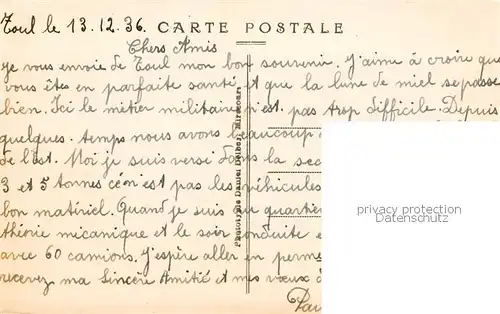 Toul le 13.12.36. CARTE POSTALE
Chers Amis
je vous envoie de Toul mon bon souvenir. j'aime à croire que
vous êtes en parfaite santé et que la lune de miel se passe
bien. Ici le métier militaire n'est pas trop difficile. Depuis
quelques. temps nous avons beaucoup
de l'est. Moi je suis versé dans la sec
3 et 5 tonnes c'en est pas les véhicules
bon matériel. Quand je suis au quartier
théorie mecanique et le soir conduite
avec 60 camions. j'espère aller en perm
recevez ma Sincère Amitié et mes vœux
Phototypie Daniel Delboy, Mirecourt
privacy protection
Datenschutz